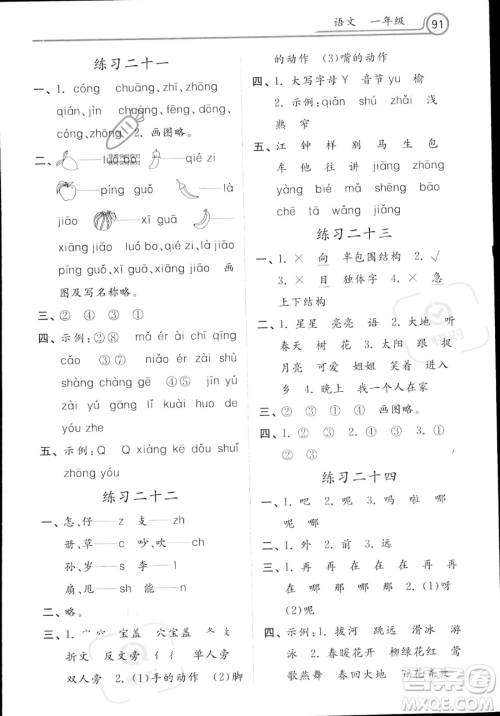 语文 一年级 91
练习二十一
一、1. cóng chuāng, zhī, zhōng
qián, jìn chuāng, fēng, dōng,
cóng, zhōng 2. 画图略。
二、 luó bo qié zi
píng guǒ là
jiāo xī guā
xiāng jiāo luó bo, qié zi, là jiāo
píng guǒ, xī guā, xiāng jiāo 画
图及写名称略。
三、②④
四、示例：②⑧ mǎ ér chī qīng
cǎo ③① niǎo ér zài shù
shàng chàng gē ④⑤ jīn yú
zài yóu ⑦⑥
/zhe yóu
五、示例：Q Q xiàng kē dǒu shuǐ
zhōng yóu
练习二十二
一、怎、仔——z 支——zh
册、草——c 吵、吹——ch
孙、岁——s 是——sh
扇、甩——sh 能——n
二、略。
三、1. 宝盖 穴宝盖 草字头 横
折文 反文旁 单人旁
双人旁 2. (1)手的动作 (2)脚
的动作 (3)嘴的动作
四、1. 大写字母 Y 音节 yú 榆
2. qiǎn shú zhǎi 浅
熟 窄
五、江 钟 样 别 马 生 包
车 他 往 讲 jiǎng zhōng
yàng bié mǎ shēng bāo
chē tā wǎng jiǎng
练习二十三
一、1. × 向 半包围结构 2. √
3. × 目 独体字 4. × 急
上下结构
二、1. 星星 亮亮 语 2. 大地 听
春天 树 花 3. 太阳 跟 来
月亮 可爱 姐姐 笑着 进入
乡 4. 晚上 我们 一起 大地
三、② ① ③ 画图略。
四、② ④ ① ③
练习二十四
一、1. 吧 2. 呢 3. 吗 啦 呢
呢 呢
二、1. 外 2. 前 3. 左
三、1. 再 再 在 在 在 再
在 再 在 2. (1)呀
(2)呢
四、示例：1. 拔河 跳远 滑冰 游
泳 2. 春暖花开 柳绿花红 莺
歌燕舞 春回大地 百花齐放